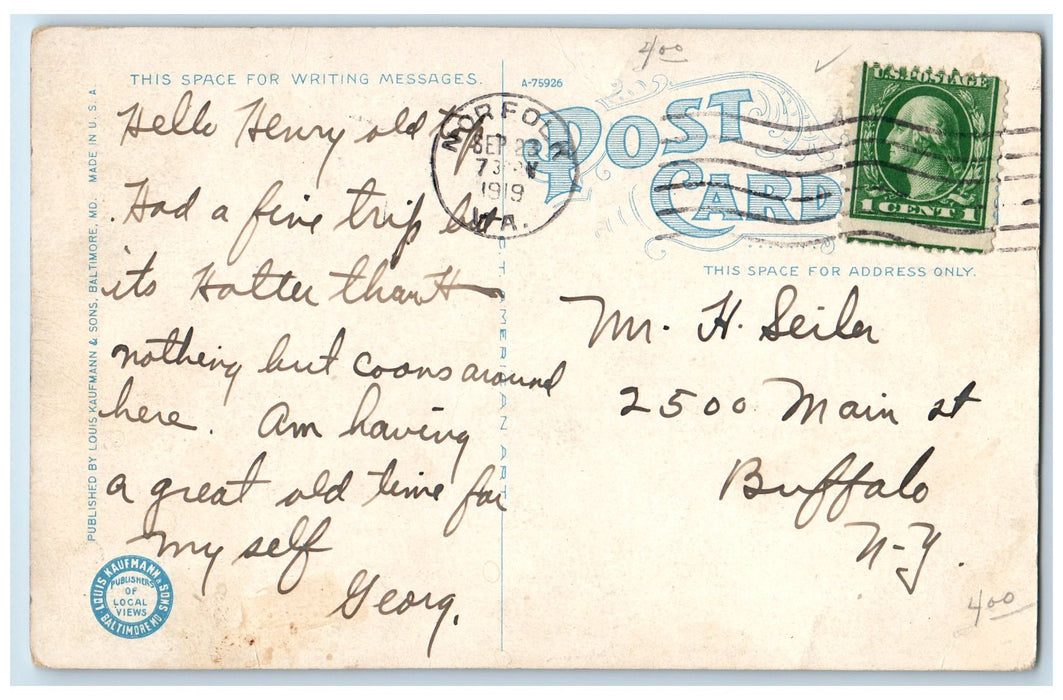 4 00
THIS SPACE FOR WRITING MESSAGES.
A-75926
POST CARD
U.S. POSTAGE
1 CENT 1
NORFOLK
SEP 23
730
1919
VA.
THIS SPACE FOR ADDRESS ONLY.
Hello Henry old
Had a fine trip but
its Hotter than H
nothing but coons around
here. Am having
a great old time for
my self
Georg.
Mr. H. Seiler
2500 Main st
Buffalo
N-Y.
4 00
PUBLISHED BY LOUIS KAUFMANN & SONS, BALTIMORE, MD. MADE IN U.S.A.
AMERICAN ART
LOUIS KAUFMANN & SONS
PUBLISHERS
OF
LOCAL
VIEWS
BALTIMORE MD